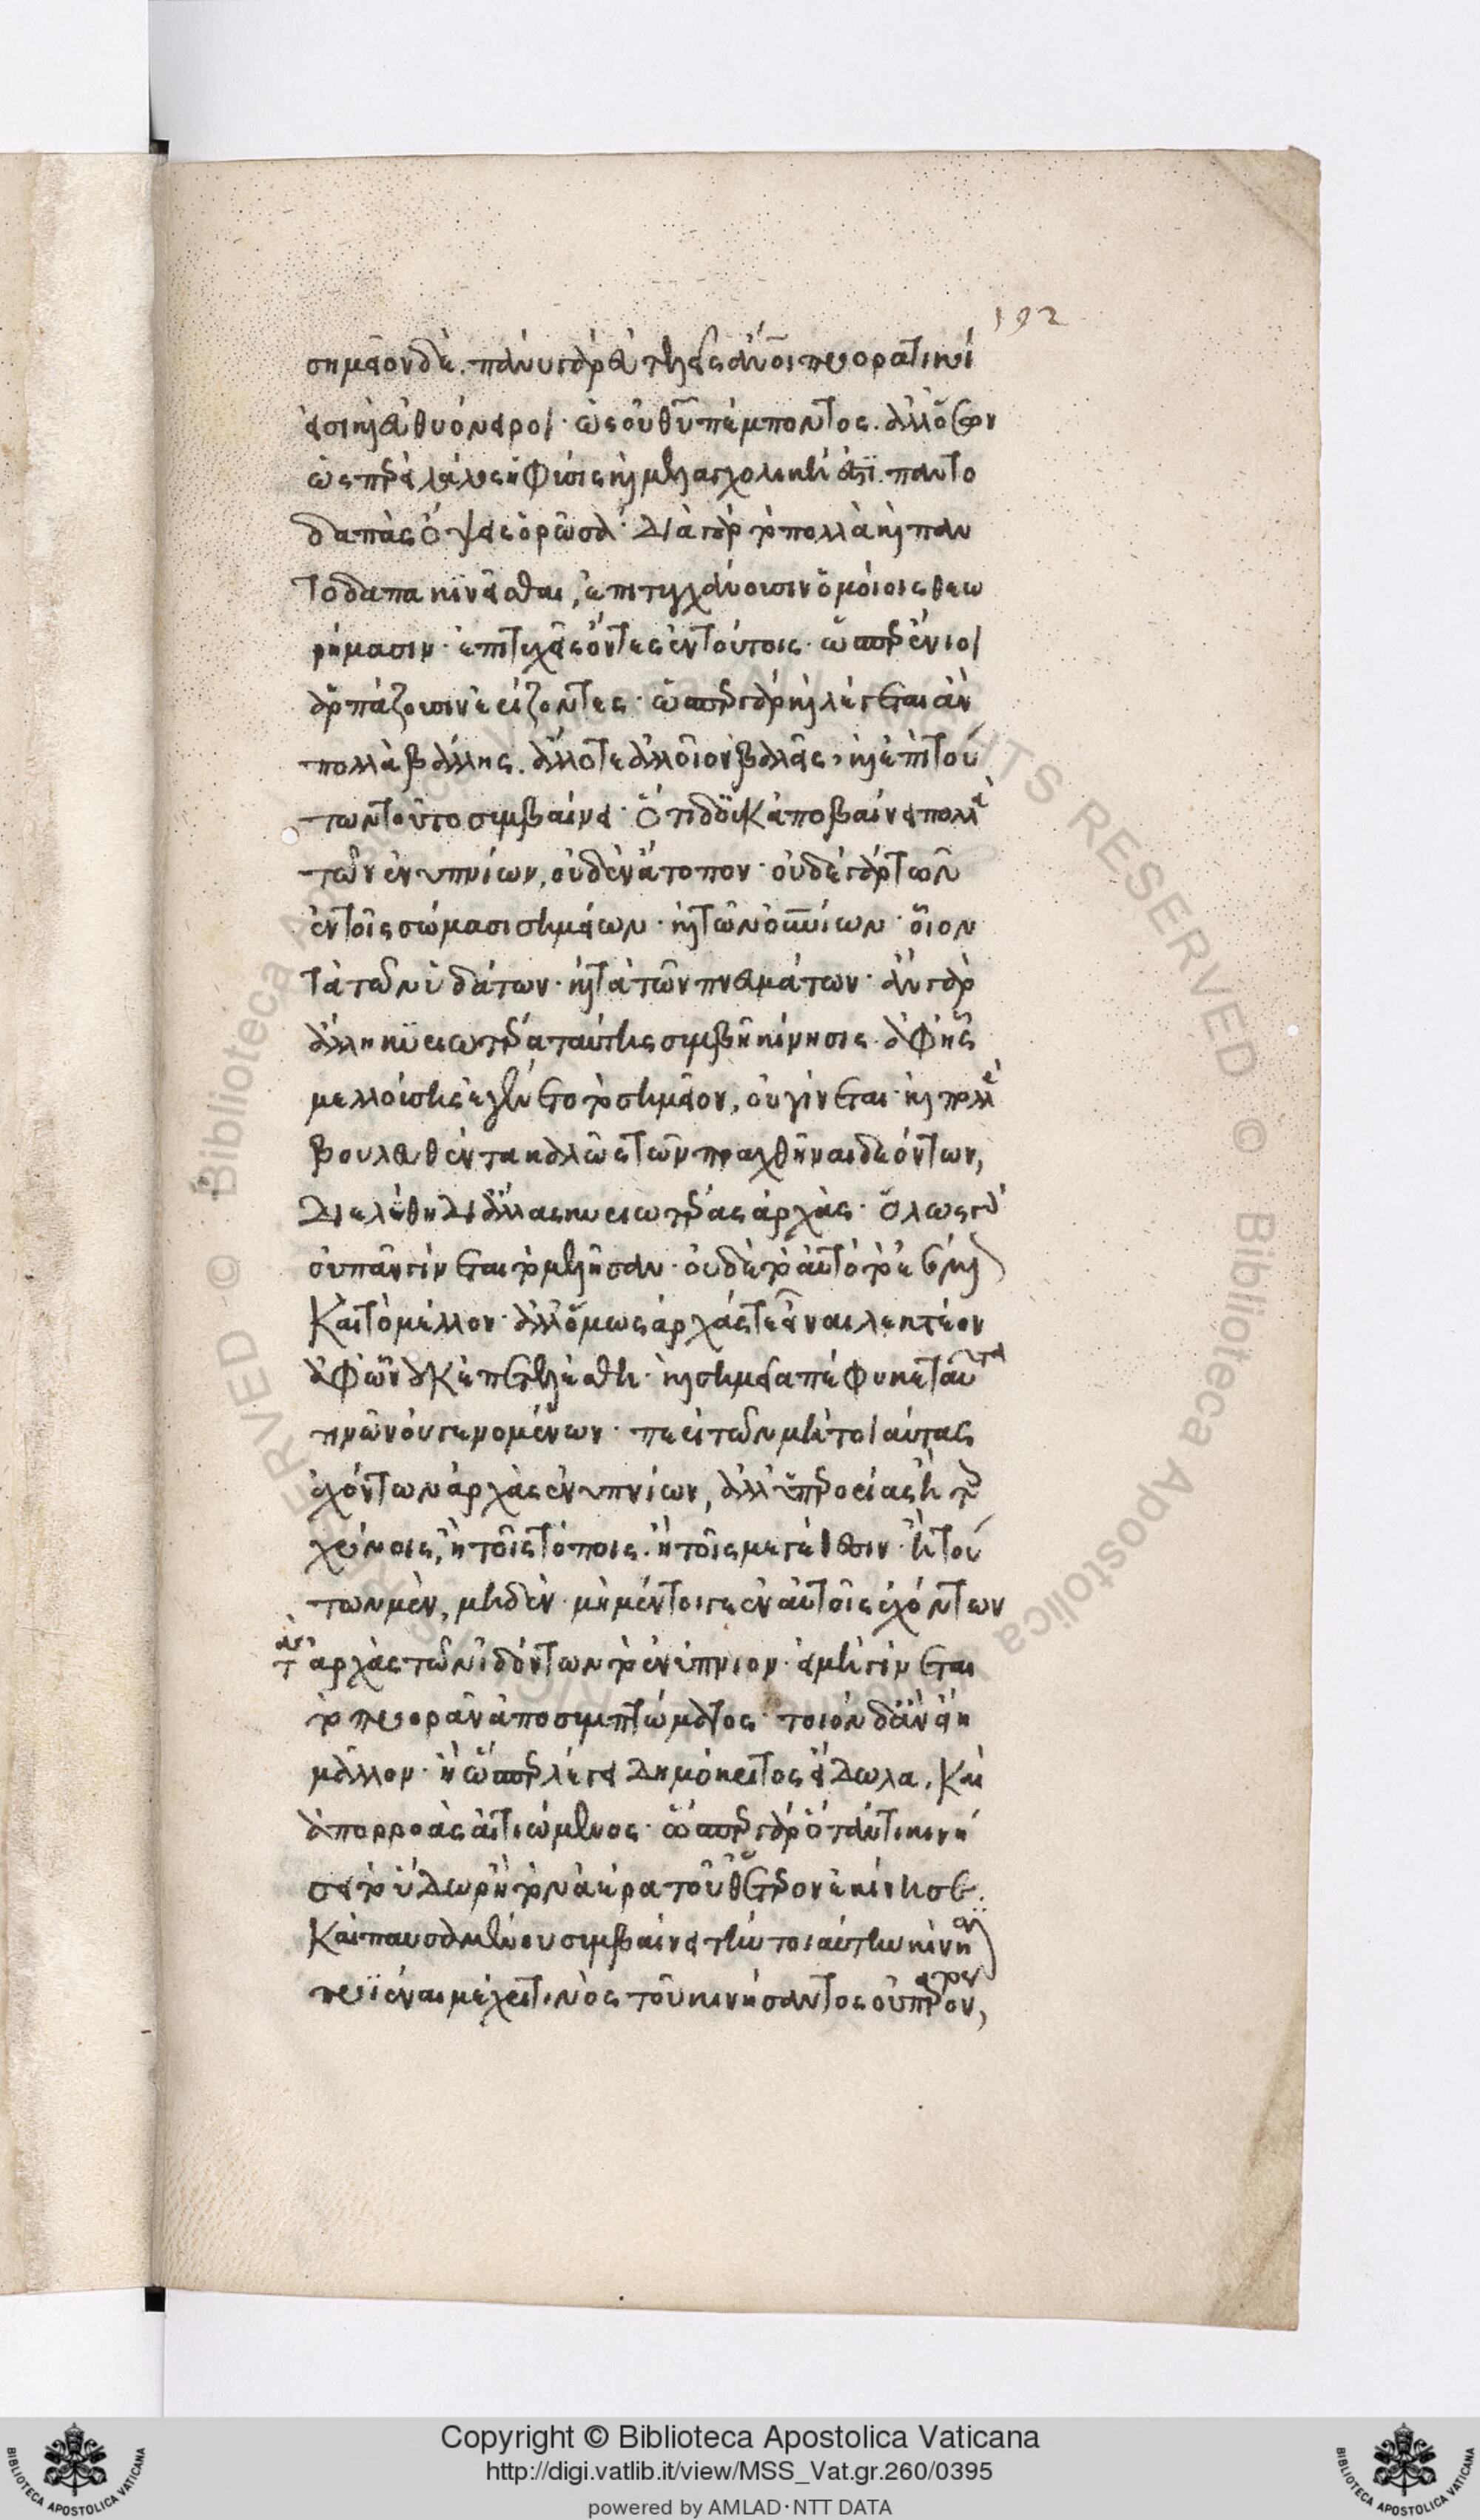 192
σημεῖον δέ. πάνυ γὰρ εὐτελεῖς ἄνοι προορατικοί
εἰσι καὶ εὐθυόνειροι· ὡς οὐ θῦ πέμποντος. ἀλλ' ὅσων
ὥσπερ ἂν λάλος ἡ φύσις καὶ μελαγχολική ἐστι. παντο
δαπὰς ὄψεις ὁρῶσι· διὰ γὰρ τὸ πολλὰ καὶ παν
τοδαπὰ κινεῖσθαι, ἐπιτυγχάνουσιν ὁμοίοις θεω
ρήμασιν· ἐπιτυχεῖς ὄντες ἐν τούτοις· ὥσπερ ἔνιοι
ἁρπάζουσιν ἐρίζοντες· ὥσπερ γὰρ καὶ λέγεται ἂν
πολλὰ βάλλης. ἄλλοτε ἀλλοῖον βαλεῖς, καὶ ἐπὶ τού
των τοῦτο συμβαίνει· ὅτι δ' οὐκ ἀποβαίνει πολλὰ
τῶν ἐνυπνίων, οὐδὲν ἄτοπον· οὐδὲ γὰρ τῶν
ἐν τοῖς σώμασι σημείων· καὶ τῶν οὐνίων· οἷον
τὰ τῶν ὑδάτων· καὶ τὰ τῶν πνευμάτων· ἂν γὰρ
ἄλλη κυριωτέρα ταύτης συμβῆ κίνησις. ἀφ' ἧς
μελλούσης ἐγένετο τὸ σημεῖον, οὐ γίνεται· καὶ πολλὰ
βουλευθέντα καλῶς τῶν πραχθῆναι δεόντων,
διελύθη δι' ἄλλας κυριωτέρας ἀρχάς· ὅλως γὰρ
οὐ πᾶν γίνεται τὸ μελλῆσαν· οὐδὲ τὸ αὐτὸ τὸ ἐσόμενον
καὶ τὸ μέλλον· ἀλλ' ὅμως ἀρχάς τε εἶναι λεκτέον
ἀφ' ὧν οὐκ ἐπετελέσθη· καὶ σημεῖα πέφυκε ταῦτα
τινῶν οὐ γενομένων· περὶ τῶν μὴ τοιαύτας
ἐχόντων ἀρχὰς ἐνυπνίων, ἀλλ' ὑπερορίας ἢ τοῖς
χρόνοις, ἢ τοῖς τόποις. ἢ τοῖς μεγέθεσιν· ἢ τού
των μὲν, μηδέν· μὴ μέντοι γε ἐν αὐτοῖς ἐχόντων
τὰς ἀρχὰς τῶν ἰδόντων τὸ ἐνύπνιον· εἰ μὴ γίνεται
τὸ προορᾶν ἀπὸ συμπτώματος· τοιόνδ' ἂν εἴη
μᾶλλον· ἢ ὥσπερ λέγει Δημόκριτος εἴδωλα. καὶ
ἀπορροὰς αἰτιώμενος· ὥσπερ γὰρ ὅταν τι κινή
ση τὸ ὕδωρ ἢ τὸν ἀέρα τοῦθ' ἕτερον ἐκίνησε.
καὶ παυσαμένου συμβαίνει τὴν τοιαύτην κίνησιν
προϊέναι μέχρι τινὸς τοῦ κινήσαντος οὐ παρόντος,
Copyright © Biblioteca Apostolica Vaticana
http://digi.vatlib.it/view/MSS_Vat.gr.260/0395
powered by AMLAD·NTT DATA